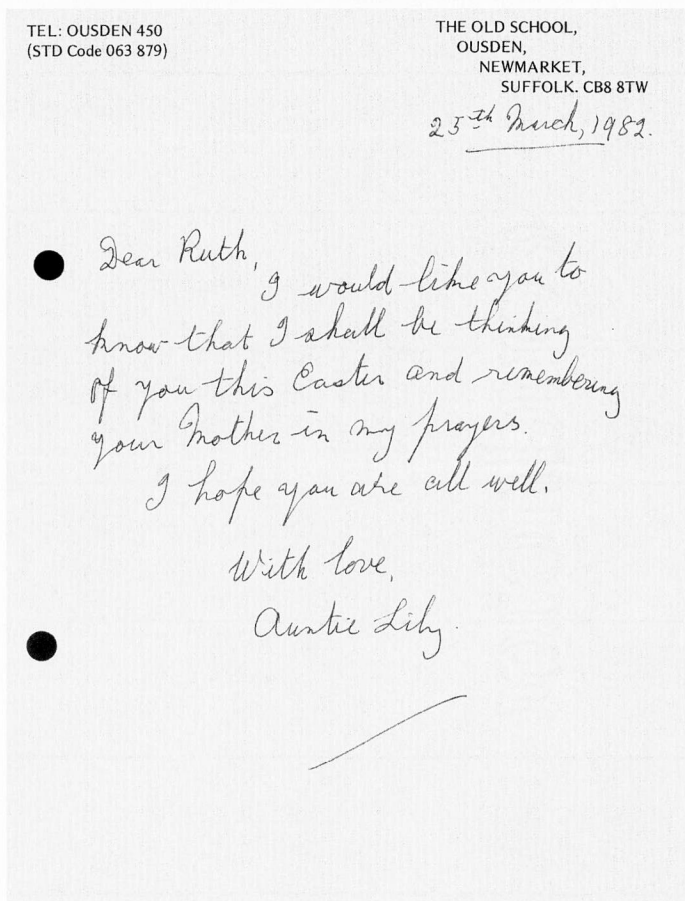 TEL: OUSDEN 450
(STD Code 063 879)
THE OLD SCHOOL,
OUSDEN,
NEWMARKET,
SUFFOLK. CB8 8TW
25th March, 1982.
Dear Ruth,
I would like you to
know that I shall be thinking
of you this Easter and remembering
your Mother in my prayers.
I hope you are all well.
With love,
Auntie Lily.